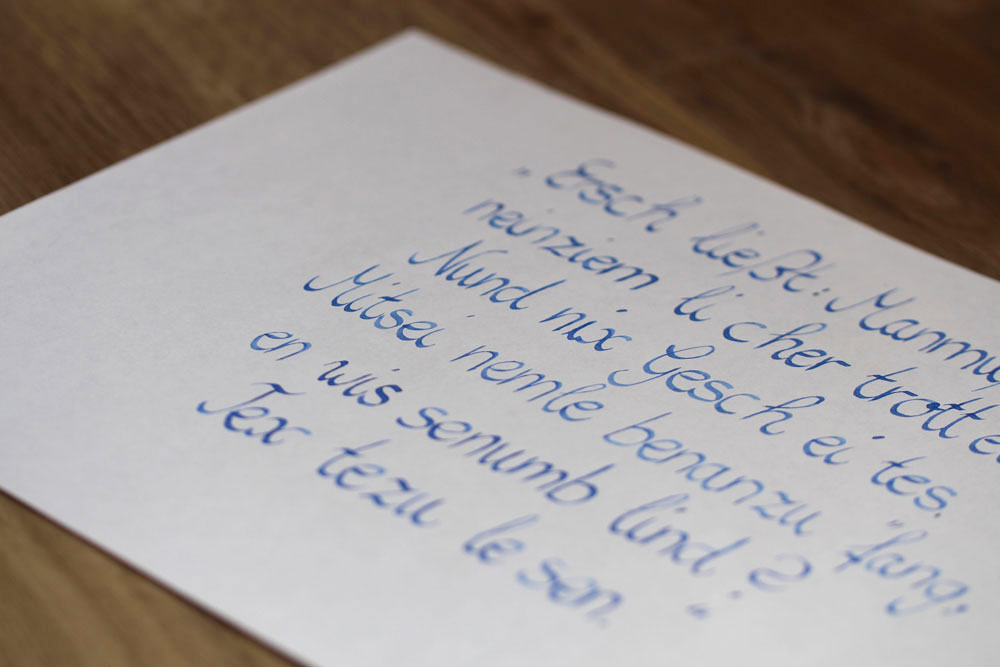 „Esch ließt: Manmuß
neinziem li cher trott el
Nund nix Gesch ei tes.
Mitsei nemle benanzu “fang;
en wis senumb lind ?
Tex tezu le sen. “